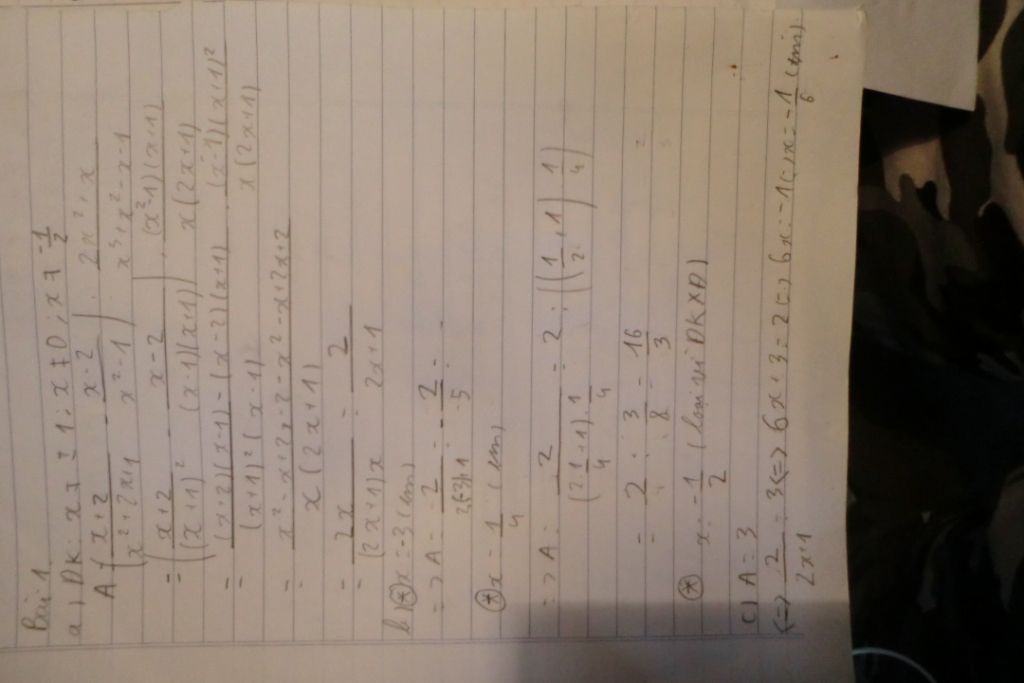 Bài 1
a) ĐK: x ≠ ± 1; x ≠ 0; x ≠ -1/2
A = (x+2/x²+2x+1 - x-2/x²-1) . 2x²+x/x³+x²-x-1
= (x+2/(x+1)² - x-2/(x-1)(x+1)) . (x²-1)(x+1)/x(2x+1)
= (x+2)(x-1) - (x-2)(x+1)/(x+1)²(x-1) . (x-1)(x+1)²/x(2x+1)
= x²-x+2x-2-x²-x+2x+2/x(2x+1)
= 2x/(2x+1)x = 2/2x+1
b) * x = -3 (tm)
=> A = 2/2.(-3)+1 = 2/-5
* x = 1/4 (tm)
=> A =
* x = -1/2 (loại vì ĐKXĐ)
c) A = 3
<=> 2/2x+1 = 3 <=> 6x+3 = 2 <=> 6x = -1 <=> x = -1/6 (tm)